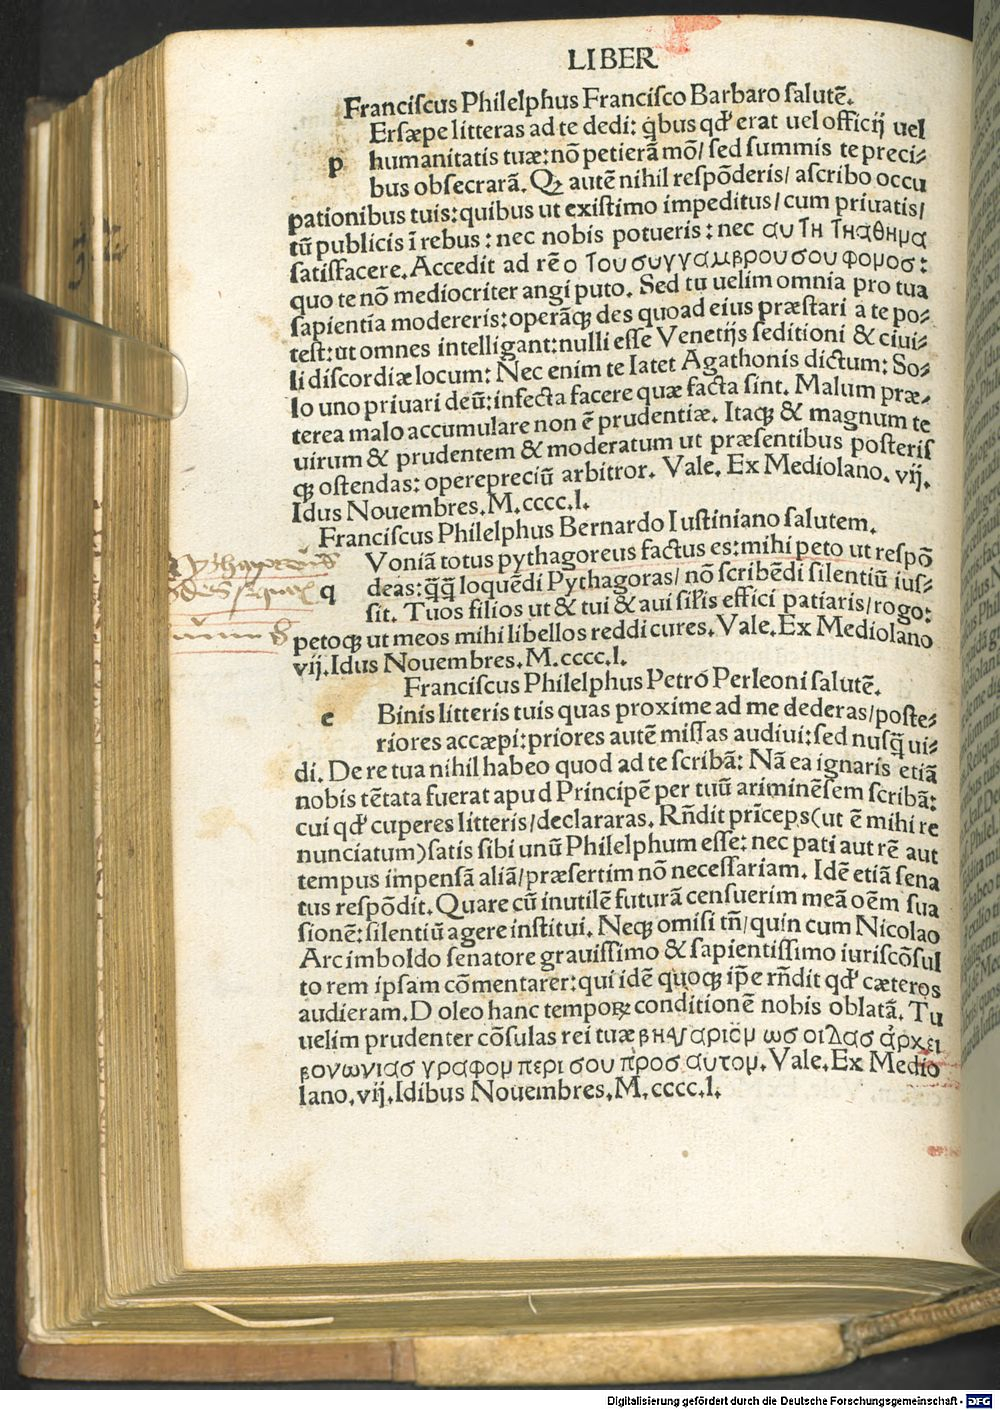 LIBER
Franciſcus Philelphus Franciſco Barbaro ſalutē.
Erſæpe litteras ad te dedi: q̇bus qđ erat uel officij uel
p humanitatis tuæ: nō petierā mō/ ſed ſummis te preci⸗
bus obſecrarā. Qꝫ autē nihil reſpōderis/ aſcribo occu
pationibus tuis: quibus ut exiſtimo impeditus/ cum priuatis/
tū publicis ī rebus: nec nobis potueris: nec αυτη τηαθημα
ſatiſfacere. Accedit ad rē ο του συγγαμβρου σου φομοσ:
quo te nō mediocriter angi puto. Sed tu uelim omnia pro tua
ſapientia modereris: operāqꝫ des quoad eius præſtari a te po⸗
teſt: ut omnes intelligant: nulli eſſe Venetijs ſeditioni & ciui⸗
li diſcordiæ locum: Nec enim te latet Agathonis dictum: So⸗
lo uno priuari deū: infecta facere quæ facta ſint. Malum præ⸗
terea malo accumulare non ē prudentiæ. Itaqꝫ & magnum te
uirum & prudentem & moderatum ut præſentibus poſteriſ
qꝫ oſtendas: operepreciū arbitror. Vale. Ex Mediolano. vij.
Idus Nouembres. M. cccc. I.
Franciſcus Philelphus Bernardo Iuſtiniano ſalutem.
Voniā totus pythagoreus factus es: mihi peto ut reſpō
q deas: q̄q̄ loquēdi Pythagoras/ nō ſcribēdi ſilentiū iuſ⸗
ſit. Tuos filios ut & tui & aui ſiſ̄is effici patiaris/ rogo:
petoqꝫ ut meos mihi libellos reddi cures. Vale. Ex Mediolano
vij. Idus Nouembres. M. cccc. I.
Franciſcus Philelphus Petro Perleoni ſalutē.
e Binis litteris tuis quas proxime ad me dederas/ poſte⸗
riores accæpi: priores autē miſſas audiui: ſed nuſq̄ ui⸗
di. De re tua nihil habeo quod ad te ſcribā: Nā ea ignaris etiā
nobis tētata fuerat apud Principē per tuū ariminēſem ſcribā:
cui qđ cuperes litteris/ declararas. Rn̄dit prīceps (ut ē mihi re
nunciatum) ſatis ſibi unū Philelphum eſſe: nec pati aut rē aut
tempus impenſā aliā/ præſertim nō neceſſariam. Idē etiā ſena
tus reſpōdit. Quare cū inutilē futurā cenſuerim meā oēm ſua
ſionē: ſilentiū agere inſtitui. Neqꝫ omiſi tn̄/ quin cum Nicolao
Arcimboldo ſenatore grauiſſimo & ſapientiſſimo iuriſcōſul
to rem ipſam cōmentarer: qui idē quoqꝫ ip̄e rn̄dit qđ cæteros
audieram. Doleo hanc temporꝫ conditionē nobis oblatā. Tu
uelim prudenter cōſulas rei tuæ ωσ οιδασ ἀρχει
γραφομ περι σου προσ αυτομ. Vale. Ex Medio
lano. vij. Idibus Nouembres. M. cccc. I.
Digitalisierung gefördert durch die Deutsche Forschungsgemeinschaft - DFG